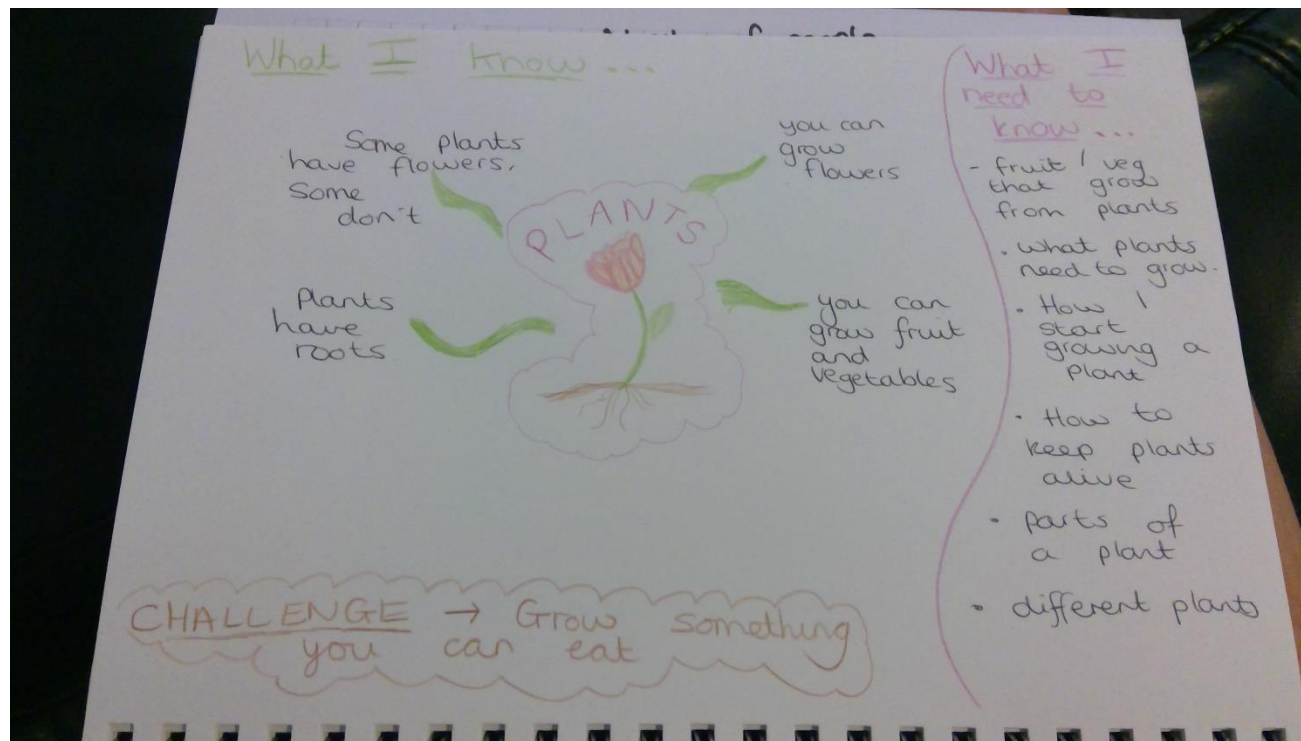 What I know...
Some plants
have flowers,
Some
don't
you can
grow
flowers
PLANTS
Plants
have
roots
you can
grow fruit
and
vegetables
CHALLENGE → Grow something
you can eat
What I
need to
know...
- fruit / veg
that grow
from plants
· what plants
need to grow.
· How I
start
growing a
plant
· How to
keep plants
alive
· parts of
a plant
· different plants